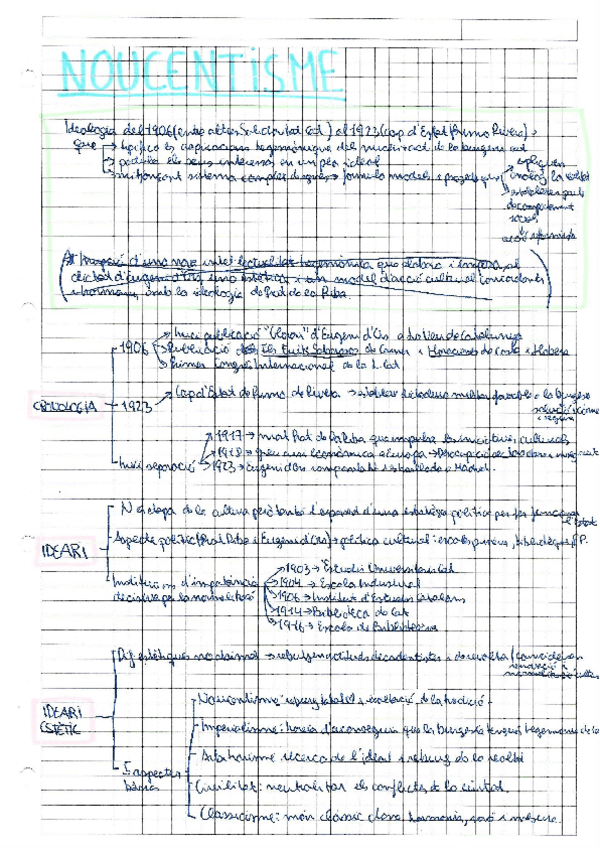 NOUCENTISME
Ideologia del 1906 (entre altres Solidaritat Cat.) al 1923 (cop d'Estat Primo Rivera).
Que → tipifica les aspiracions hegemòniques del nucli actiu de la burgesia cat
→ postula els seus interessos en un pla ideal
→ mitjançant sistema complex de signes → formula models i projectes que
expliquen
la realitat
estableixen pautes
de comportament
social
acció reformista
Aparició d'una nova intel·lectualitat hegemònica que elabora i imposa, al
dictat d'Eugeni d'Ors, una estètica i un model d'acció cultural concordants
i harmònics, amb la ideologia de Prat de la Riba.
CRONOLOGIA
1906
→ Inici publicació "Glosari" d'Eugeni d'Ors a La Veu de Catalunya
→ Publicació de Els fruits saborosos de Carner i Horacianes de Costa i Llobera
→ Primer Congrés Internacional de la Ll. Cat.
1923 → Cop d'Estat de Primo de Rivera → estableix dictadura militar favorable a la burgesia
Inici separació
→ 1917 → mort Prat de la Riba que impulsa les iniciatives culturals
→ 1918 → greu crisi econòmica a Europa →
→ 1923 → Eugeni d'Ors i es trasllada a Madrid.
IDEARI
N és etapa de la cultura però també l'exponent d'una estratègia política per fer funcionar
l'Estat
Aspecte polític (Prat Riba i Eugeni d'Ors) → política cultural: escoles, museus, biblioteques P.
Institucions d'importància
decisiva per la normalització
→ 1903 → Estudis Universitaris Cat
→ 1904 → Escola Industrial
→ 1906 → Institut d'Estudis Catalans
→ 1914 → Biblioteca de Cat
→ 1916 → Escola de Bibliotecàries
IDEARI
ESTÈTIC
Dif estètiques modernisme → rebutgen actituds decadentistes i de revolta
5 aspectes
bàsics
Noucentisme: exaltació de la tradició.
Imperialisme: havia d'aconseguir que la burgesia tingués hegemonia de
Arbitrarisme: recerca de l'ideal i rebuig de la realitat
Civilitat: neutralitzar els conflictes de la ciutat.
Classicisme: món clàssic dona harmonia, gràcia i mesura.